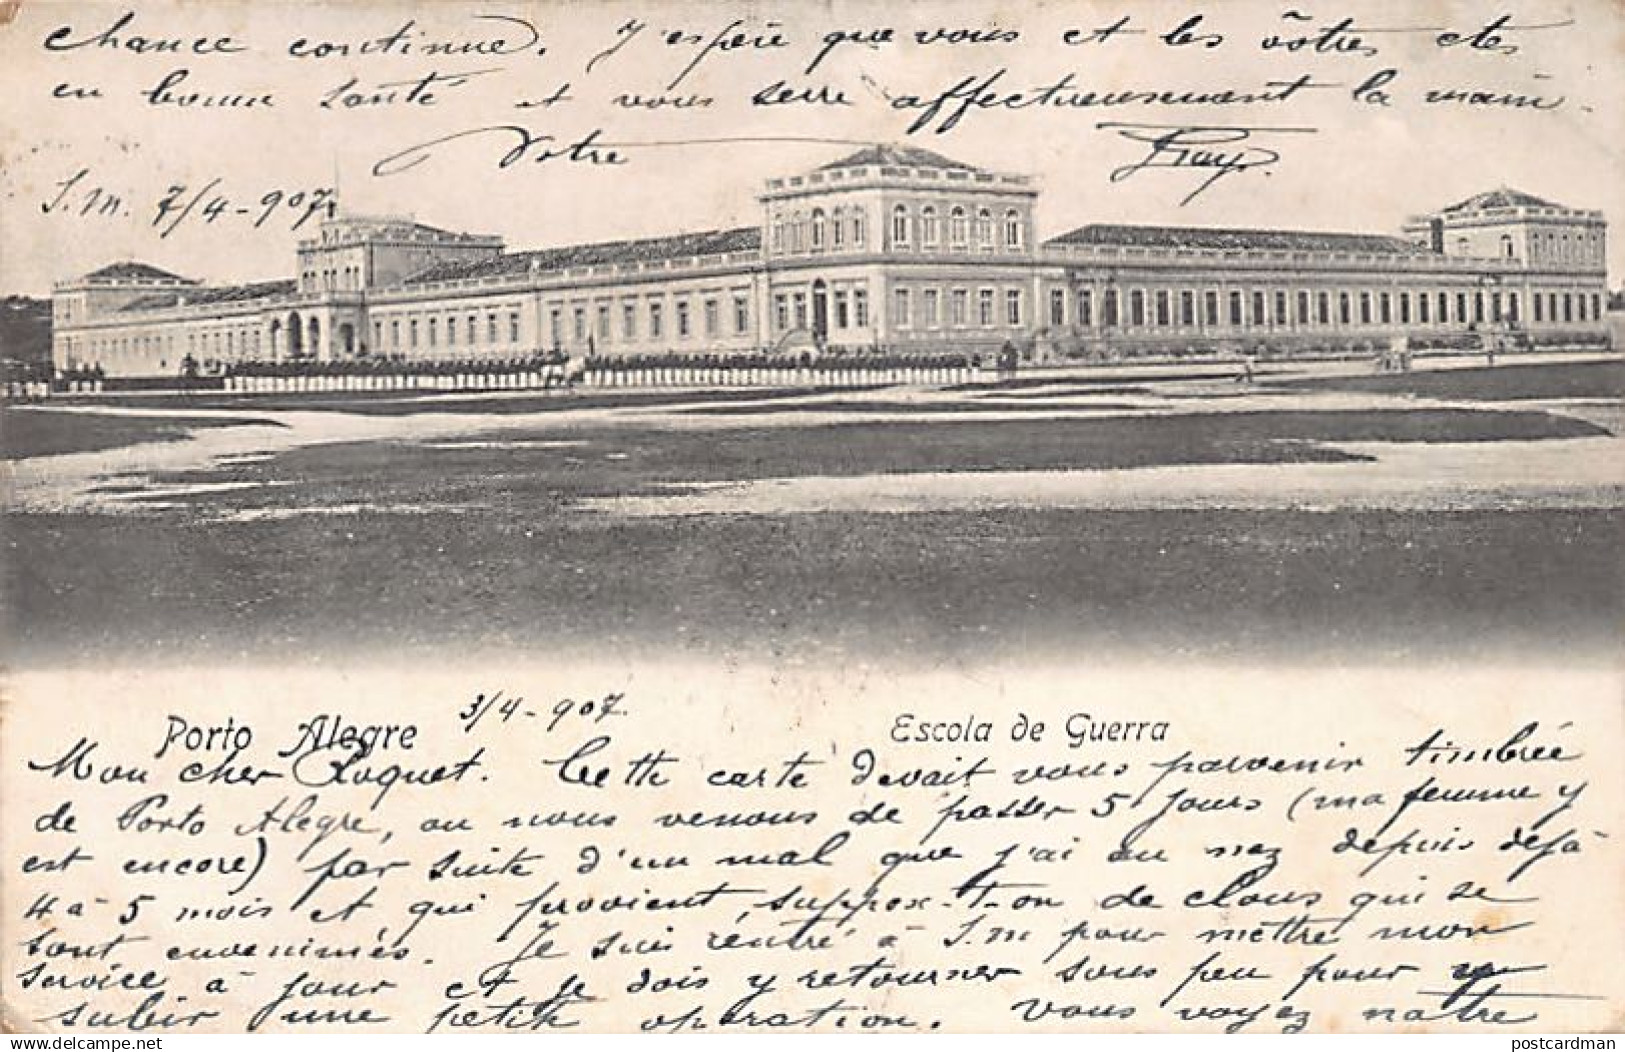 chance continue. J'espère que vous et les vôtres etes
en bonne santé et vous serre affectueusement la main.
Votre
S.M. 7/4-907.
3/4-907.
Porto Alegre
Escola de Guerra
Mon cher Roquet. Cette carte devait vous parvenir timbrée
de Porto Alegre, ou nous venons de passer 5 jours (ma femme y
est encore) par suite d'un mal que j'ai au nez depuis déjà
4 à 5 mois et qui provient, suppose-t-on de clous qui se
sont envenimés. Je suis rentré à S.M pour mettre mon
service à jour et je dois y retourner sous peu pour y
subir une petite opération. Vous voyez notre
delcampe.net
postcardman